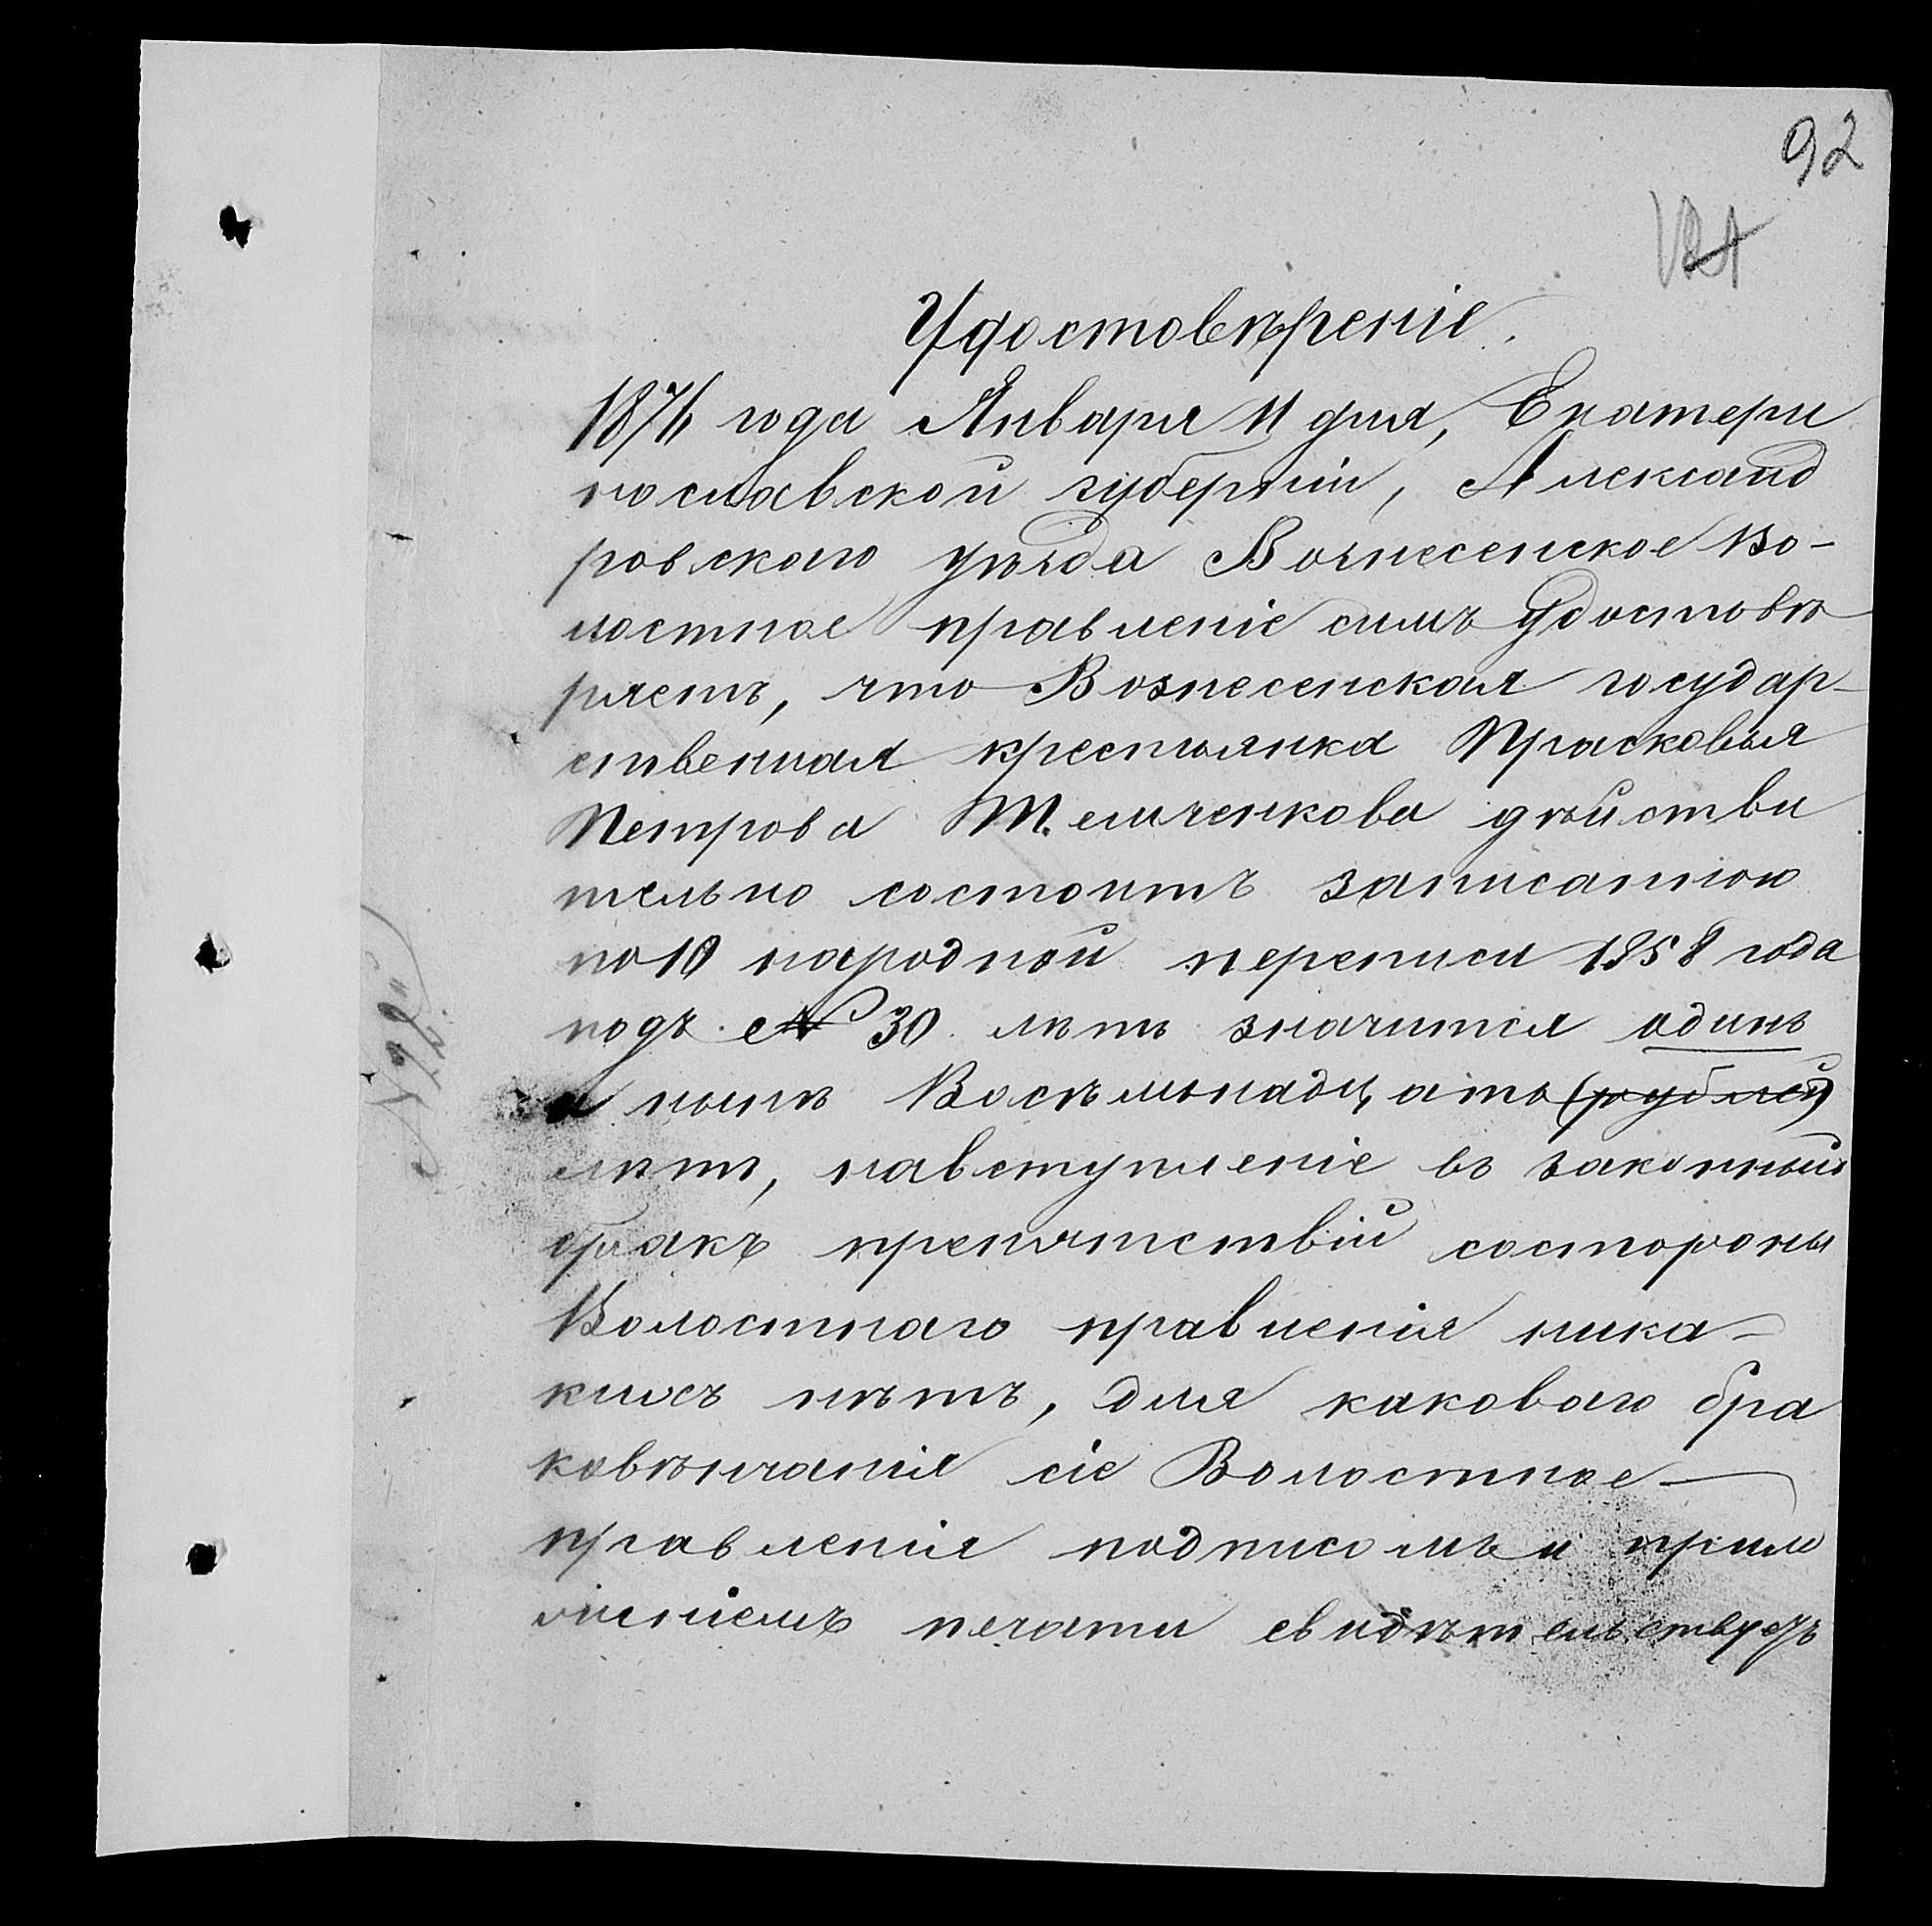 92
Удостовѣреніе.
1876 года Января 11 дня, Екатери
нославской губерніи, Александ
ровскаго уѣзда Вознесенское Во-
лостное правленіе симъ удостовѣ
ряетъ, что Вознесенская государ-
ственная крестьянка Прасковья
Петрова Темченкова дѣйстви
тельно состоитъ записанною
по 10 народной переписи 1858 года
подъ № 30 лѣтъ значится одинъ
а нынѣ Восѣмьнадцать (рублей)
лѣтъ, навступленіе въ законный
бракъ препятствій состороны
Волостнаго правленія ника-
кихъ нѣтъ, для каковаго бра
ковѣнчанія сіе Волостное
правленія подписомъ и прило
женіемъ печати свидѣтельствуетъ